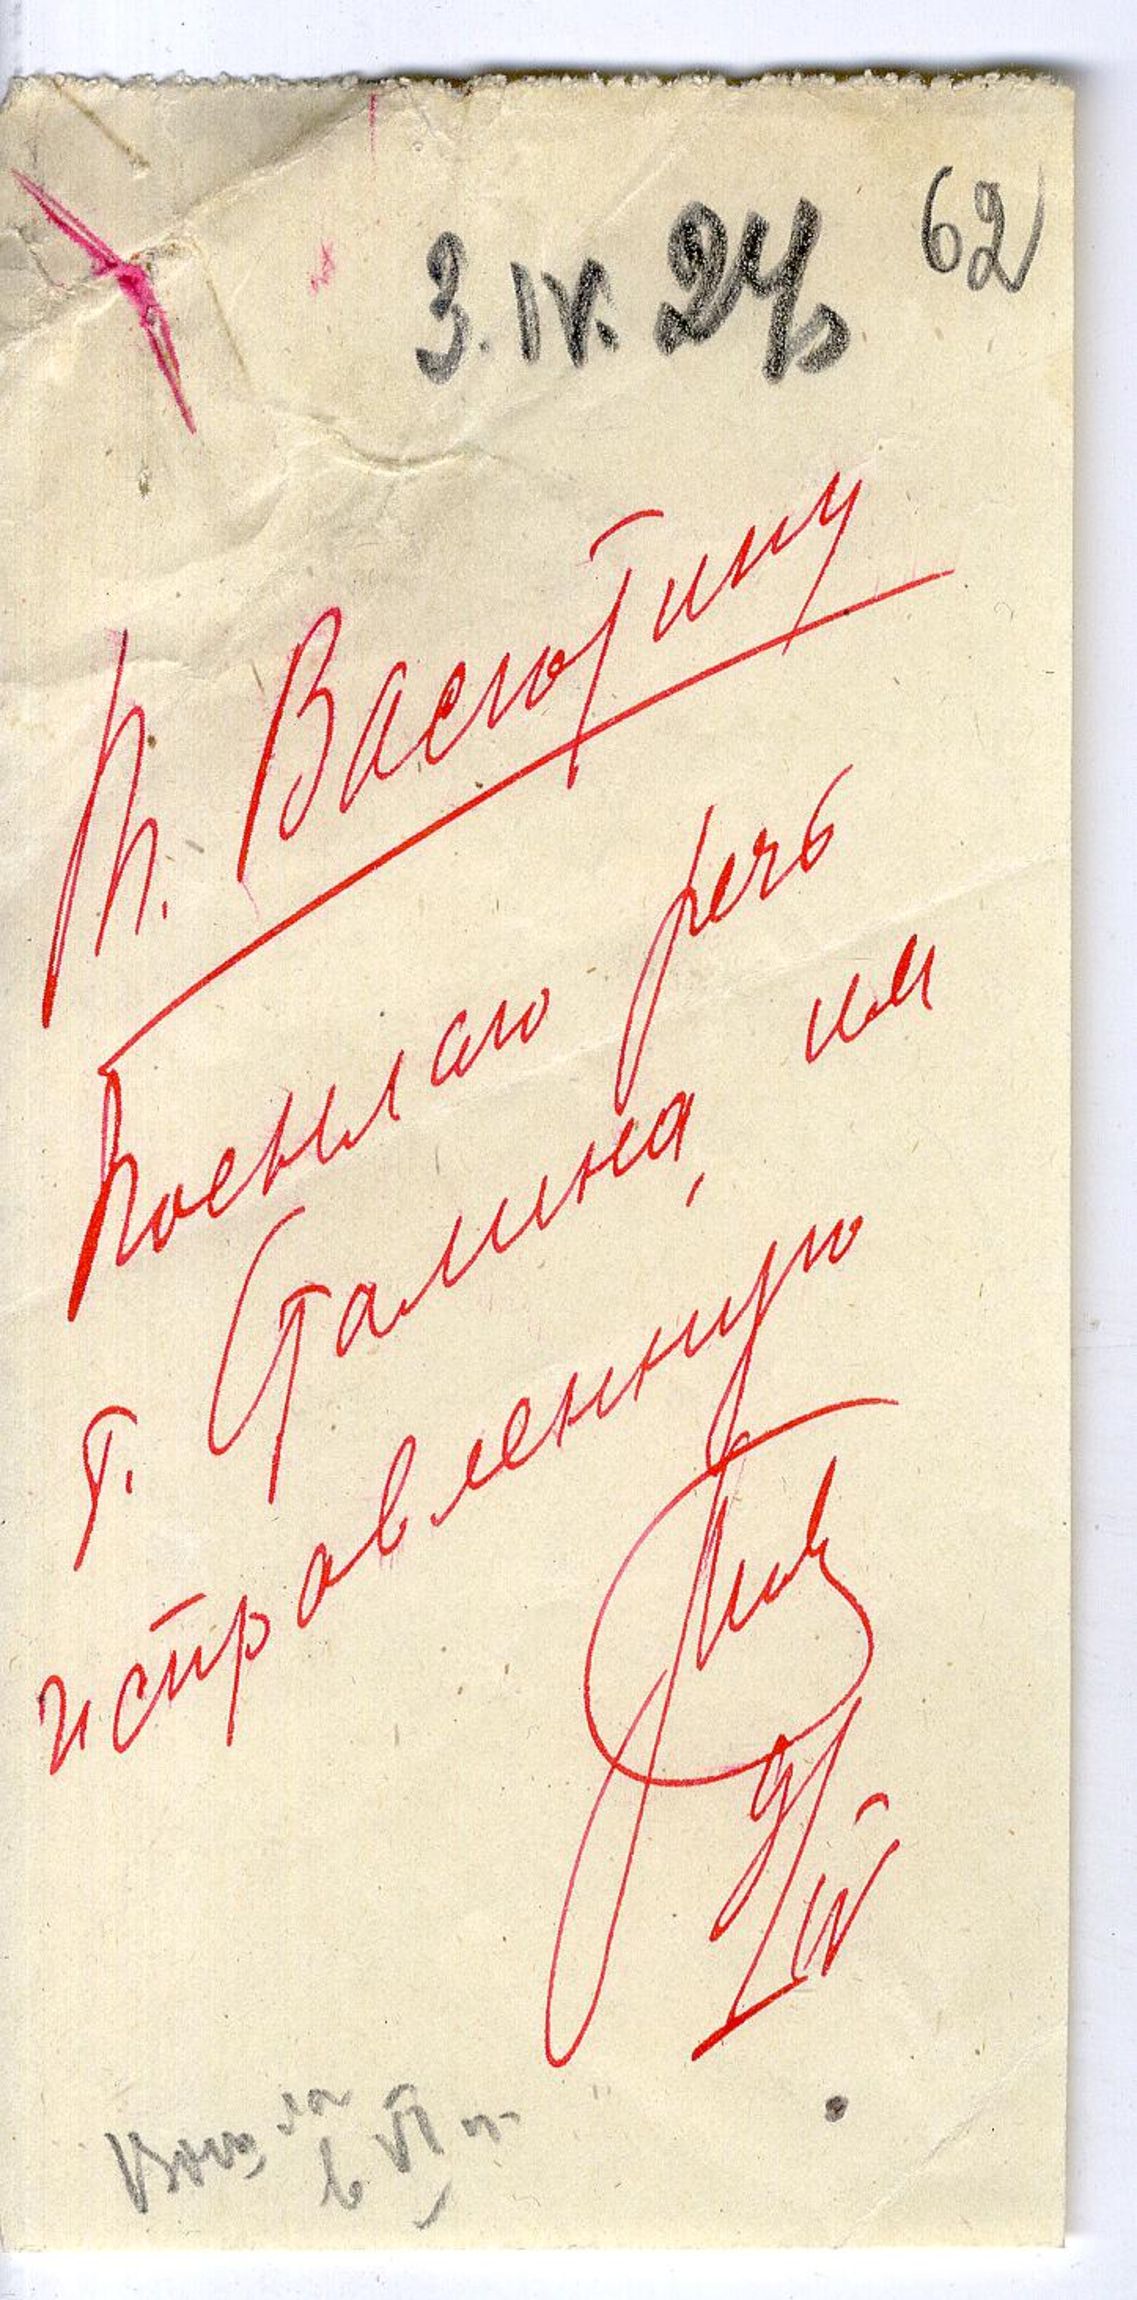 62
3.IV.24г
Т. Васютину
Посылаю речь
т. Сталина, им
исправленную
9/IV
Вошла
в VI т.